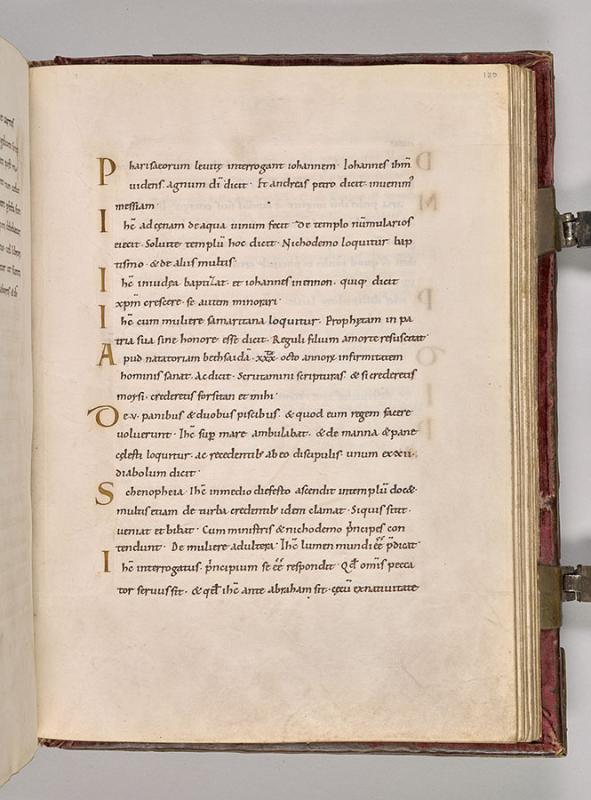 180
Pharisaeorum leuitę interrogant iohannem. Iohannes ihm̄
uidens agnum dī dicit. Et andreas petro dicit. inuenim᾽
messiam.
Ihc̄ ad cęnam de aqua uinum fecit. De templo nūmularios
eiecit. Soluite templū hoc dicit. Nichodemo loquitur bap
tismo. & de aliis multis.
Ihc̄ in iudęa baptizat. et iohannes in ennon. quiq; dicit
xpm̄ crescere. se autem minorari.
Ihc̄ cum muliere samaritana loquitur. Prophętam in pa
tria sua sine honore esse dicit. Reguli filium a morte resuscitat.
Apud natatoriam bethsaida. xxx octo annorum infirmitatem
hominis sanat. Ac dicit. Scrutamini scripturas. & si crederetis
moysi. crederetis forsitan et mihi.
De.v. panibus & duobus piscibus. & quod eum regem facere
uoluerunt. Ihc̄ sup̄ mare ambulabat. & de manna & pane
cęlesti loquitur. ac recedentib; ab eo discipulis. unum ex xii.
diabolum dicit.
Schenopheia. Ihc̄ in medio die festo ascendit in templū doc&.
multis etiam de turba credentib; idem clamat. Siquis sitit.
ueniat et bibat. Cum ministris & nichodemo p̄ncipes con
tendunt. De muliere adultera. Ihc̄ lumen mundi eē p̄dicat.
Ihc̄ interrogatus. p̄ncipium se eē respondit. Qd̄ omis̄ pecca
tor seruus sit. & qd̄ ihc̄ ante abraham sit. cęcū ex natiuitate